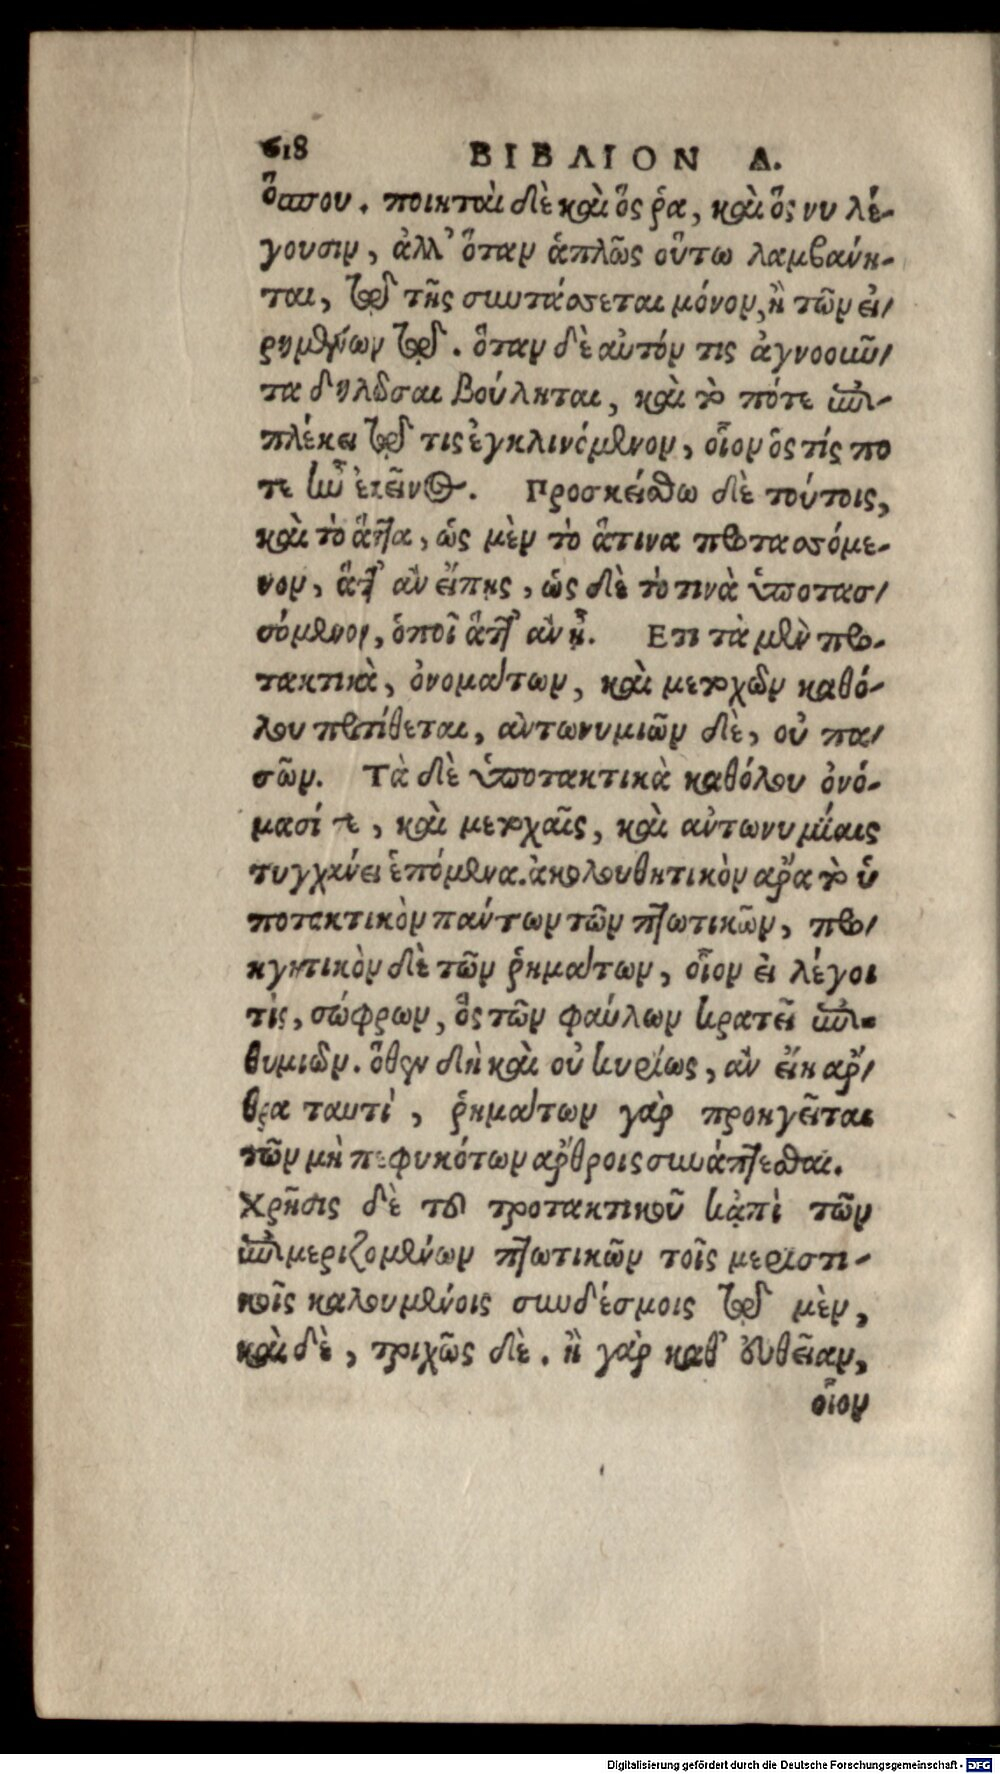 618 ΒΙΒΛΙΟΝ Δ.
ὅπου. ποιηταὶ δὲ καὶ ὅς ῥα, καὶ ὅς νυ λέ-
γουσιν, ἀλλ' ὅταν ἁπλῶς οὕτω λαμβάνη-
ται, τῷ τῆς συντάσσεται μόνον, ἢ τῶν εἰ/
ρημένων τῷ. ὅταν δὲ αὐτόν τις ἀγνοοῦν/
τα δηλῶσαι βούληται, καὶ τὸ πότε ἐπι-
πλέκει τῷ τις ἐγκλινόμενον, οἷον ὅς τίς πο
τε ἦν ἐκεῖνος. Προσκείσθω δὲ τούτοις,
καὶ τὸ ἅττα, ὡς μὲν τὸ ἅτινα προτασσόμε-
νον, ἅττ' ἂν εἴπης, ὡς δὲ τὸ τινὰ ὑποτασ/
σόμενον, ὁποῖ ἄττ' ἂν ᾖ. Ετι τὰ μὲν προ-
τακτικὰ, ὀνομάτων, καὶ μετοχῶν καθό-
λου προτίθεται, ἀντωνυμιῶν δὲ, οὐ πα/
σῶν. Τὰ δὲ ὑποτακτικὰ καθόλου ὀνό-
μασί τε, καὶ μετοχαῖς, καὶ ἀντωνυμίαις
τυγχάνει ἑπόμενα. ἀκολουθητικὸν ἄρα τὸ ὑ
ποτακτικὸν πάντων τῶν πτωτικῶν, προ/
ηγητικὸν δὲ τῶν ῥημάτων, οἷον εἰ λέγοι
τὶς, σώφρων, ὃς τῶν φαύλων κρατεῖ ἐπι-
θυμιῶν. ὅθεν δὴ καὶ οὐ κυρίως, ἂν εἴη ἄρ/
θρα ταυτὶ, ῥημάτων γὰρ προηγεῖται
τῶν μὴ πεφυκότων ἄρθροις συνάπτεσθαι.
Χρῆσις δὲ τοῦ προτακτικοῦ κἀπὶ τῶν
ἐπιμεριζομένων πτωτικῶν τοῖς μεριστι-
κοῖς καλουμένοις συνδέσμοις τῷ μὲν,
καὶ δὲ, τριχῶς δὲ. ἢ γὰρ καθ' εὐθεῖαν,
οἷον
Digitalisierung gefördert durch die Deutsche Forschungsgemeinschaft - DFG